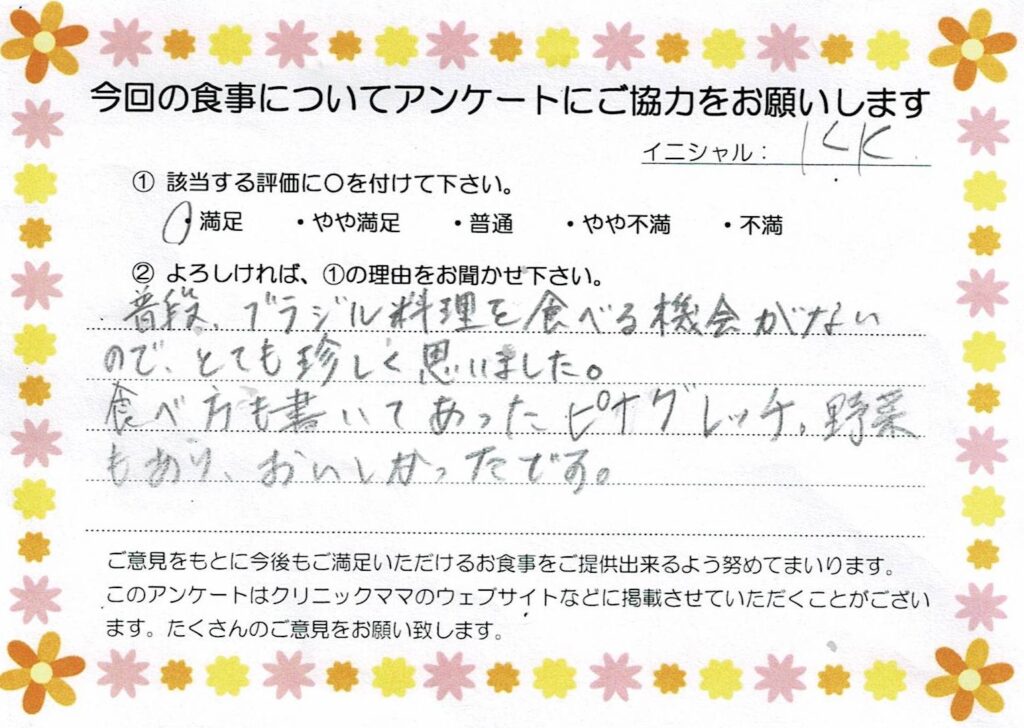 今回の食事についてアンケートにご協力をお願いします
イニシャル： K K.
① 該当する評価に〇を付けて下さい。
・満足 ・やや満足 ・普通 ・やや不満 ・不満
② よろしければ、①の理由をお聞かせ下さい。
普段、ブラジル料理を食べる機会がない
ので、とても珍しく思いました。
食べ方も書いてあったビナグレッチ。野菜
もあり、おいしかったです。
ご意見をもとに今後もご満足いただけるお食事をご提供出来るよう努めてまいります。
このアンケートはクリニックママのウェブサイトなどに掲載させていただくことがござい
ます。たくさんのご意見をお願い致します。